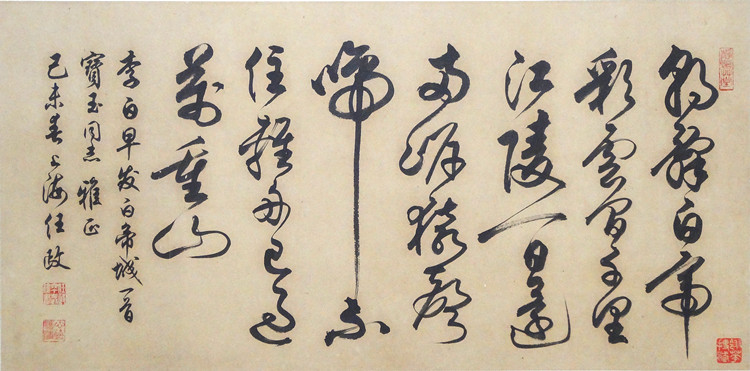 朝辭白帝
彩雲間千里
江陵一日還
兩岸猿聲
啼不
住輕舟已過
萬重山
李白早发白帝城一首
寶玉同志 雅正
己未春上海任政